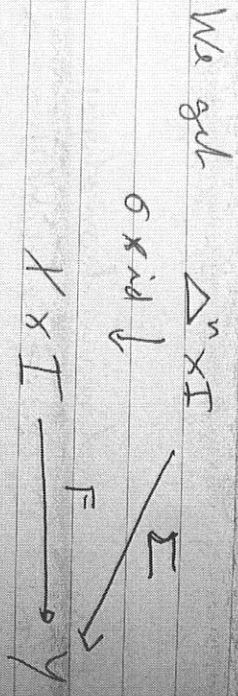 We get Δⁿ × I
σ × id ↓ Σ
X × I → Y
F